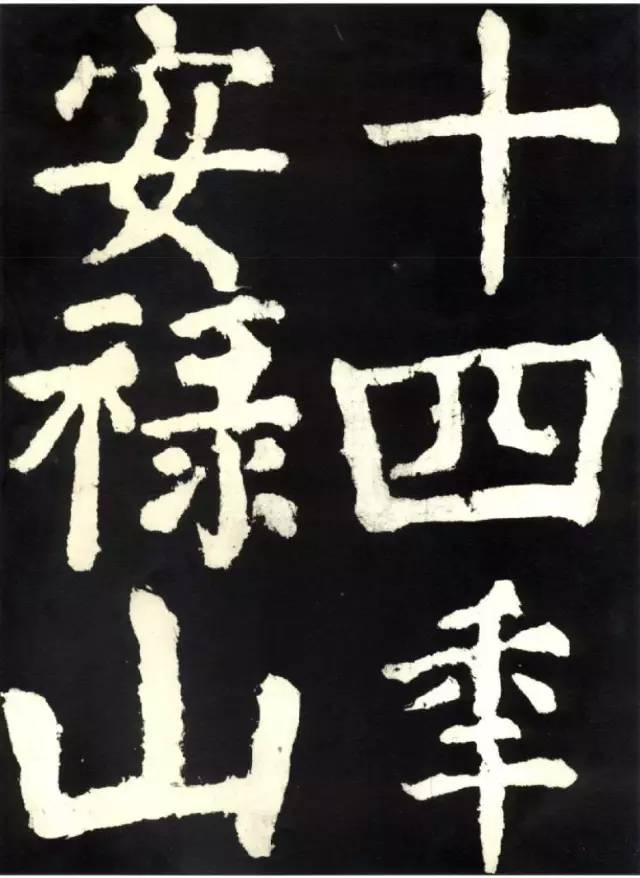 十四年
安禄山